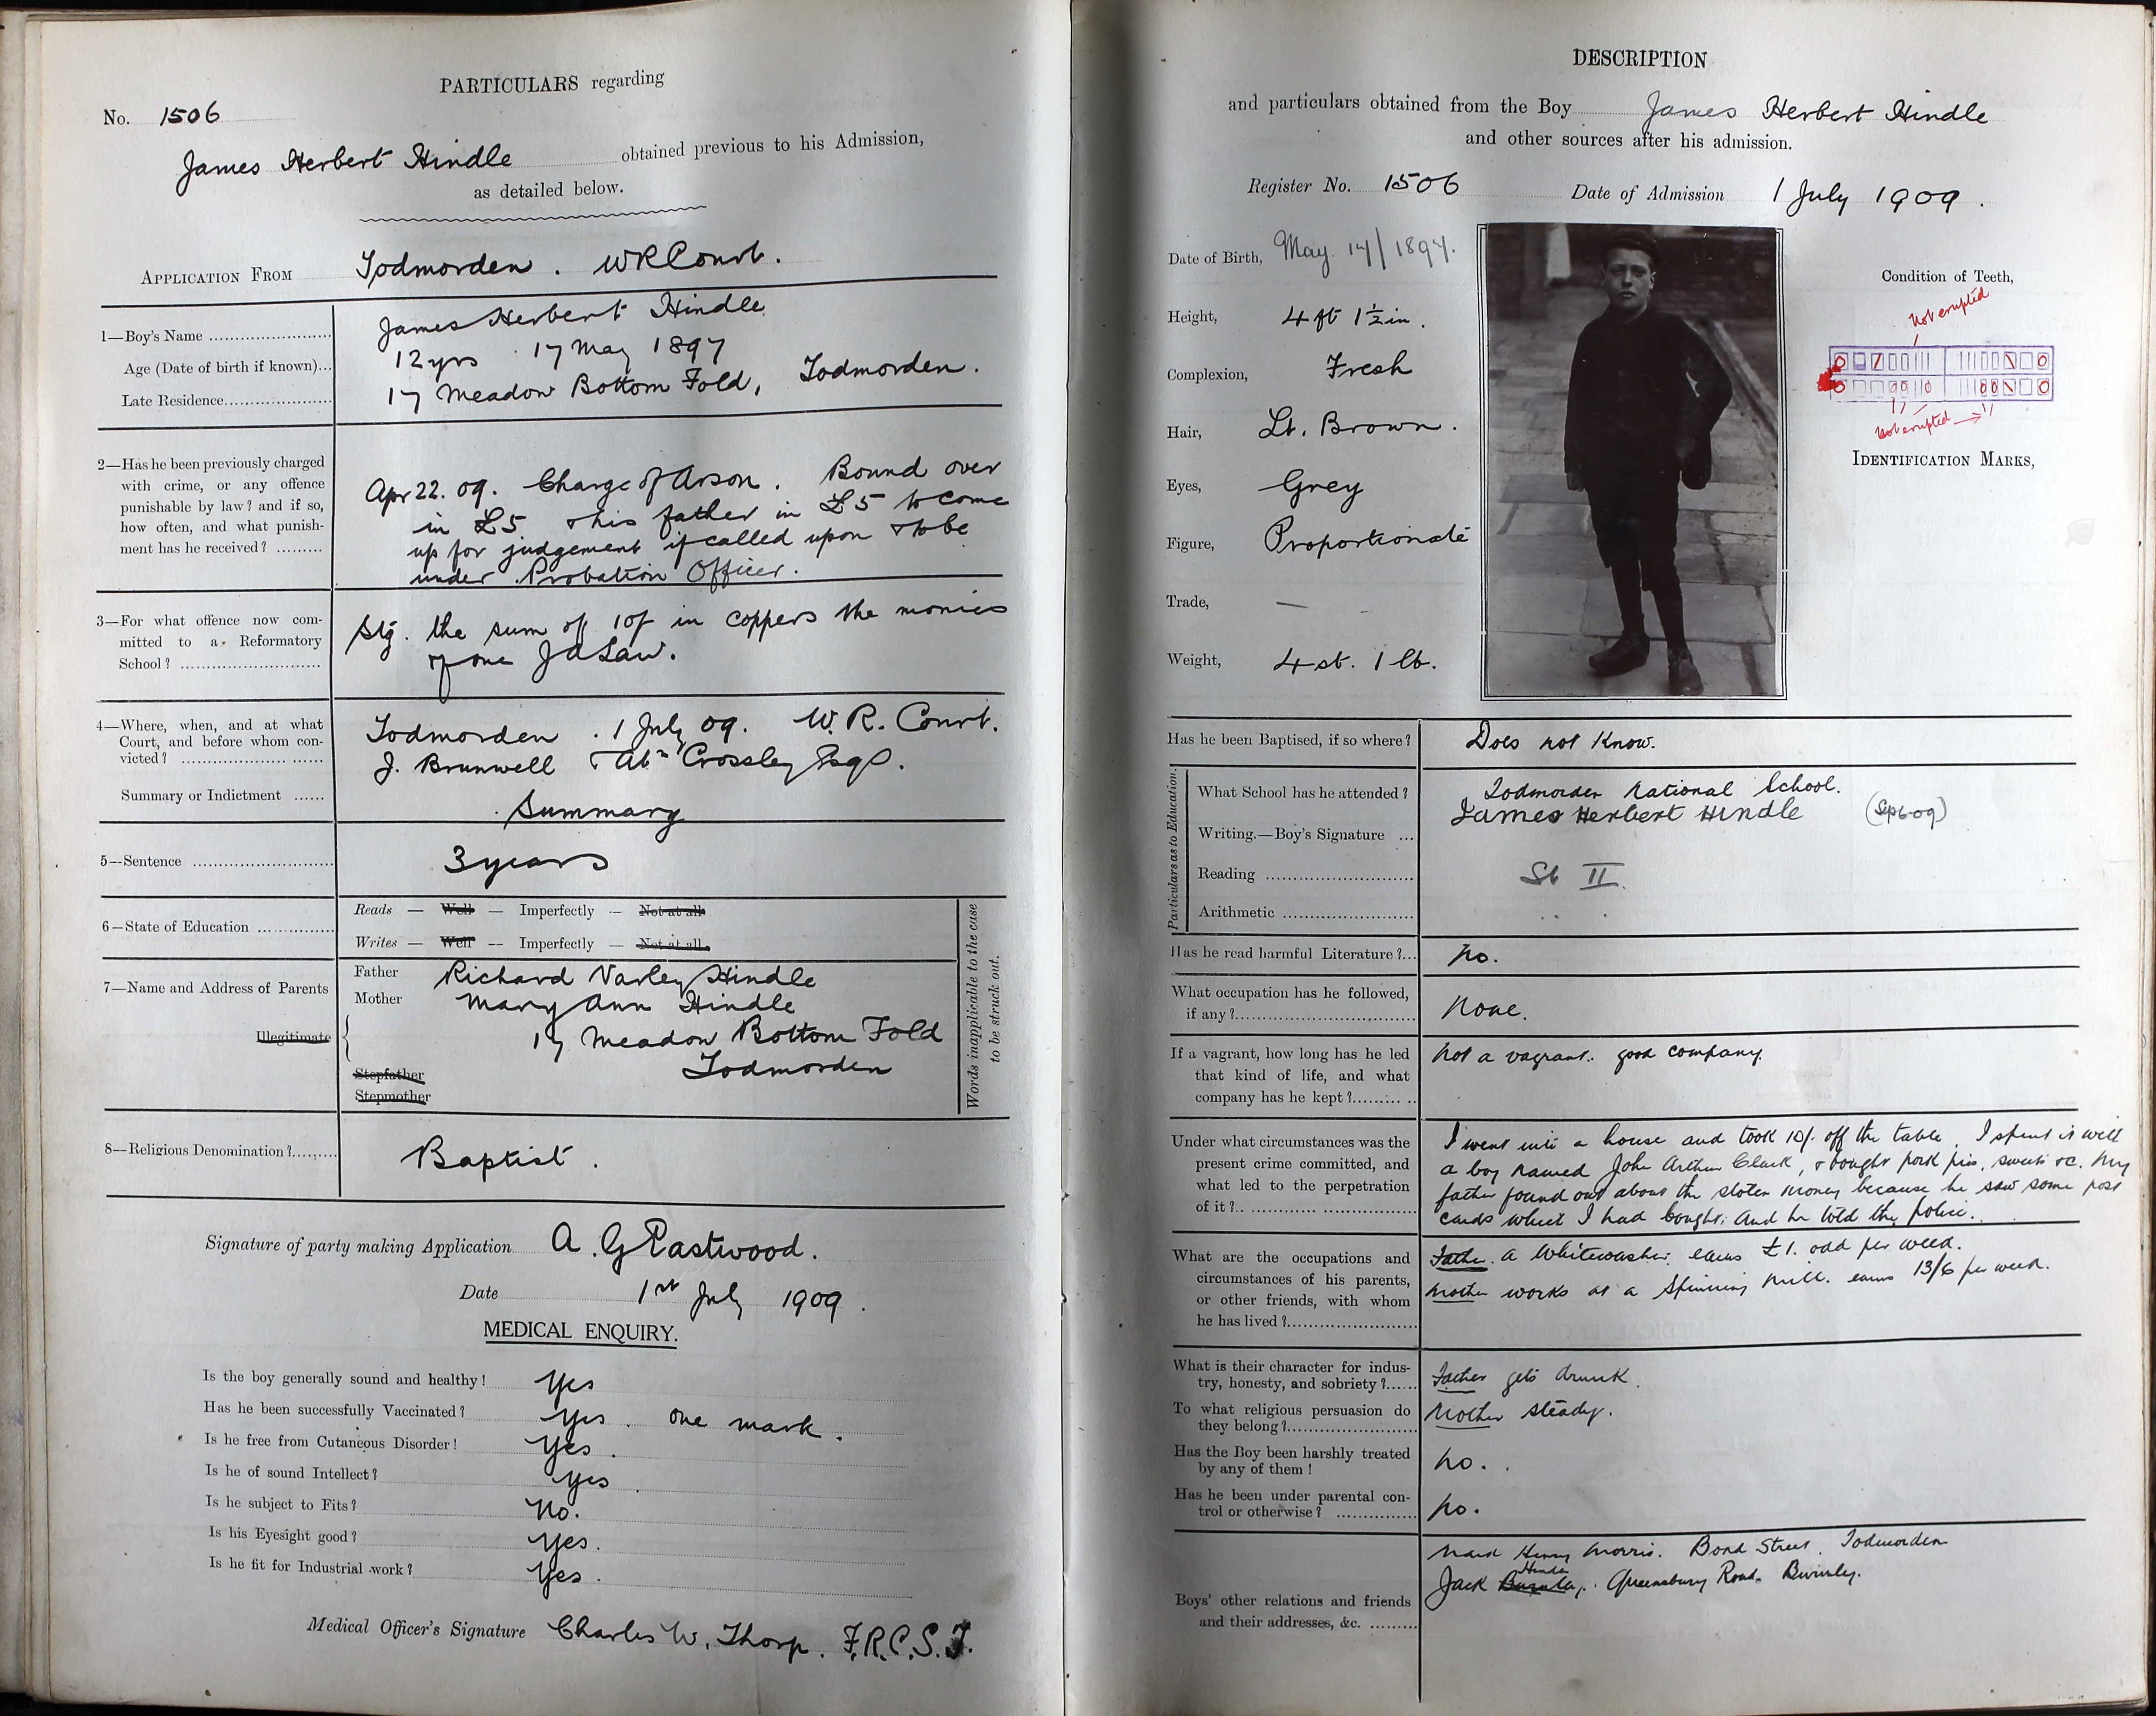 PARTICULARS regarding
No. 1506
James Herbert Hindle obtained previous to his Admission,
as detailed below.
APPLICATION FROM Todmorden. W R Court.
1—Boy's Name James Herbert Hindle
Age (Date of birth if known)... 12 yrs 17 May 1897
Late Residence 17 Meadow Bottom Fold, Todmorden.
2—Has he been previously charged
with crime, or any offence
punishable by law? and if so,
how often, and what punish-
ment has he received?
Apr 22. 09. Charge of Arson. Bound over
in £5 & his father in £5 to come
up for judgement if called upon & to be
under Probation Officer.
3—For what offence now com-
mitted to a Reformatory
School?
Stg. the sum of 10/- in coppers the monies
of one J A Law.
4—Where, when, and at what
Court, and before whom con-
victed?
Todmorden. 1 July 09. W. R. Court.
J. Brunwell & Abm Crossley Esqs.
Summary or Indictment
Summary
5—Sentence 3 years
6—State of Education
Reads — Well — Imperfectly — Not at all
Writes — Well — Imperfectly — Not at all.
Words inapplicable to the case
to be struck out.
7—Name and Address of Parents
Illegitimate
Father Richard Varley Hindle
Mother Mary Ann Hindle
17 Meadow Bottom Fold
Todmorden
Stepfather
Stepmother
8—Religious Denomination? Baptist.
Signature of party making Application A. G Eastwood.
Date 1st July 1909.
MEDICAL ENQUIRY.
Is the boy generally sound and healthy! Yes
Has he been successfully Vaccinated? Yes. one mark.
Is he free from Cutaneous Disorder! Yes.
Is he of sound Intellect? Yes.
Is he subject to Fits? No.
Is his Eyesight good? Yes.
Is he fit for Industrial work? Yes.
Medical Officer's Signature Charles W. Thorp. F.R.C.S.I.
DESCRIPTION
and particulars obtained from the Boy James Herbert Hindle
and other sources after his admission.
Register No. 1506 Date of Admission 1 July 1909.
Date of Birth, May 17/1897.
Height, 4 ft 1½ in.
Complexion, Fresh
Hair, Lt. Brown.
Eyes, Grey
Figure, Proportionate
Trade, —
Weight, 4 st. 1 lb.
Condition of Teeth,
Not erupted
Not erupted
IDENTIFICATION MARKS,
Has he been Baptised, if so where? Does not know.
Particulars as to Education.
What School has he attended? Todmorden National School.
Writing.—Boy's Signature ... James Herbert Hindle (Sep 6-09)
Reading St II.
Arithmetic " "
Has he read harmful Literature?... No.
What occupation has he followed,
if any? None.
If a vagrant, how long has he led
that kind of life, and what
company has he kept?
Not a vagrant. good company.
Under what circumstances was the
present crime committed, and
what led to the perpetration
of it?
I went into a house and took 10/- off the table. I spent it with
a boy named John Arthur Clark, & bought pork pies, sweets &c. My
father found out about the stolen money because he saw some post
cards which I had bought. And he told the police.
What are the occupations and
circumstances of his parents,
or other friends, with whom
he has lived?
Father. a Whitewasher. earns £1. odd per week.
Mother works at a Spinning Mill. earns 13/6 per week.
What is their character for indus-
try, honesty, and sobriety? Father gets drunk.
To what religious persuasion do
they belong? Mother steady.
Has the Boy been harshly treated
by any of them! No.
Has he been under parental con-
trol or otherwise? No.
Boys' other relations and friends
and their addresses, &c.
Henry Morris. Bond Street. Todmorden
Jack Queensbury Road.